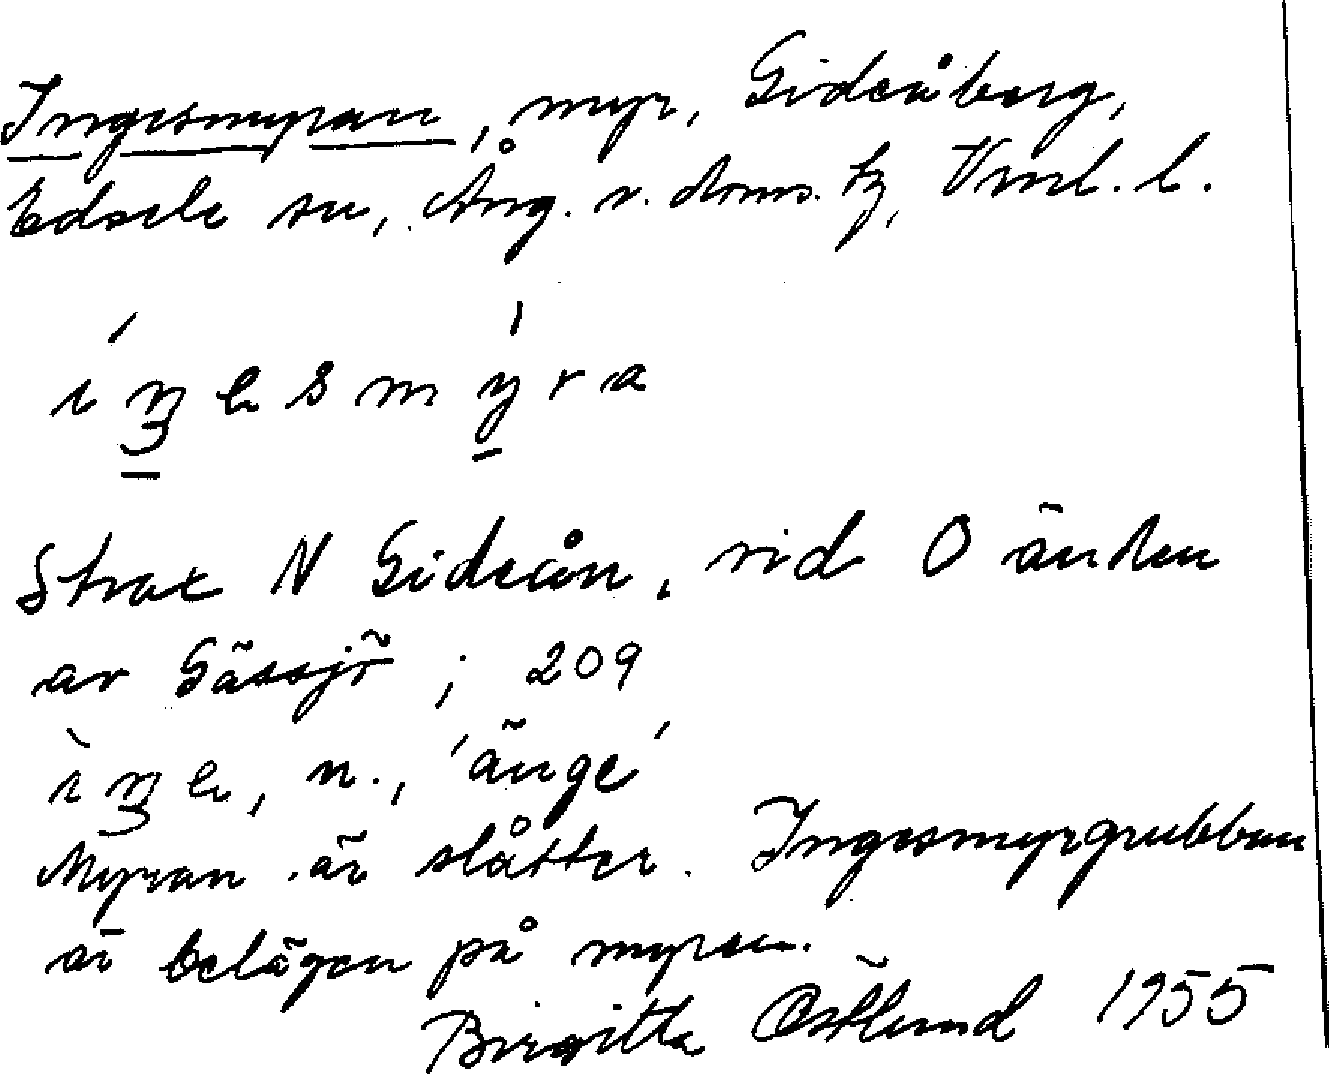 Ingesmyran, myr, Gideåberg,
Edsele sn, Ång. v. doms. tg, Vml. l.
íŋesmýra
Strax N Gideån, vid O änden
av Gässjö ; 209
ìŋe, n., 'änge'
Myran är slåtter. Ingesmyrgrubban
är belägen på myren.
Birgitta Östlund 1955